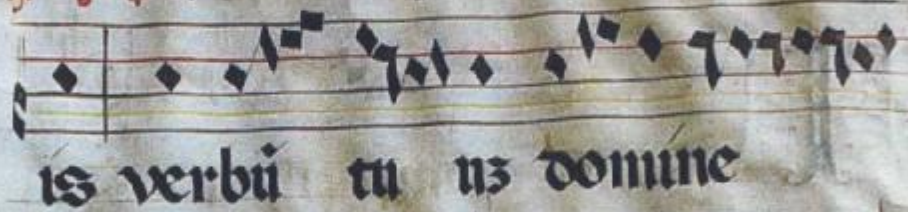 is verbū tu uz domine